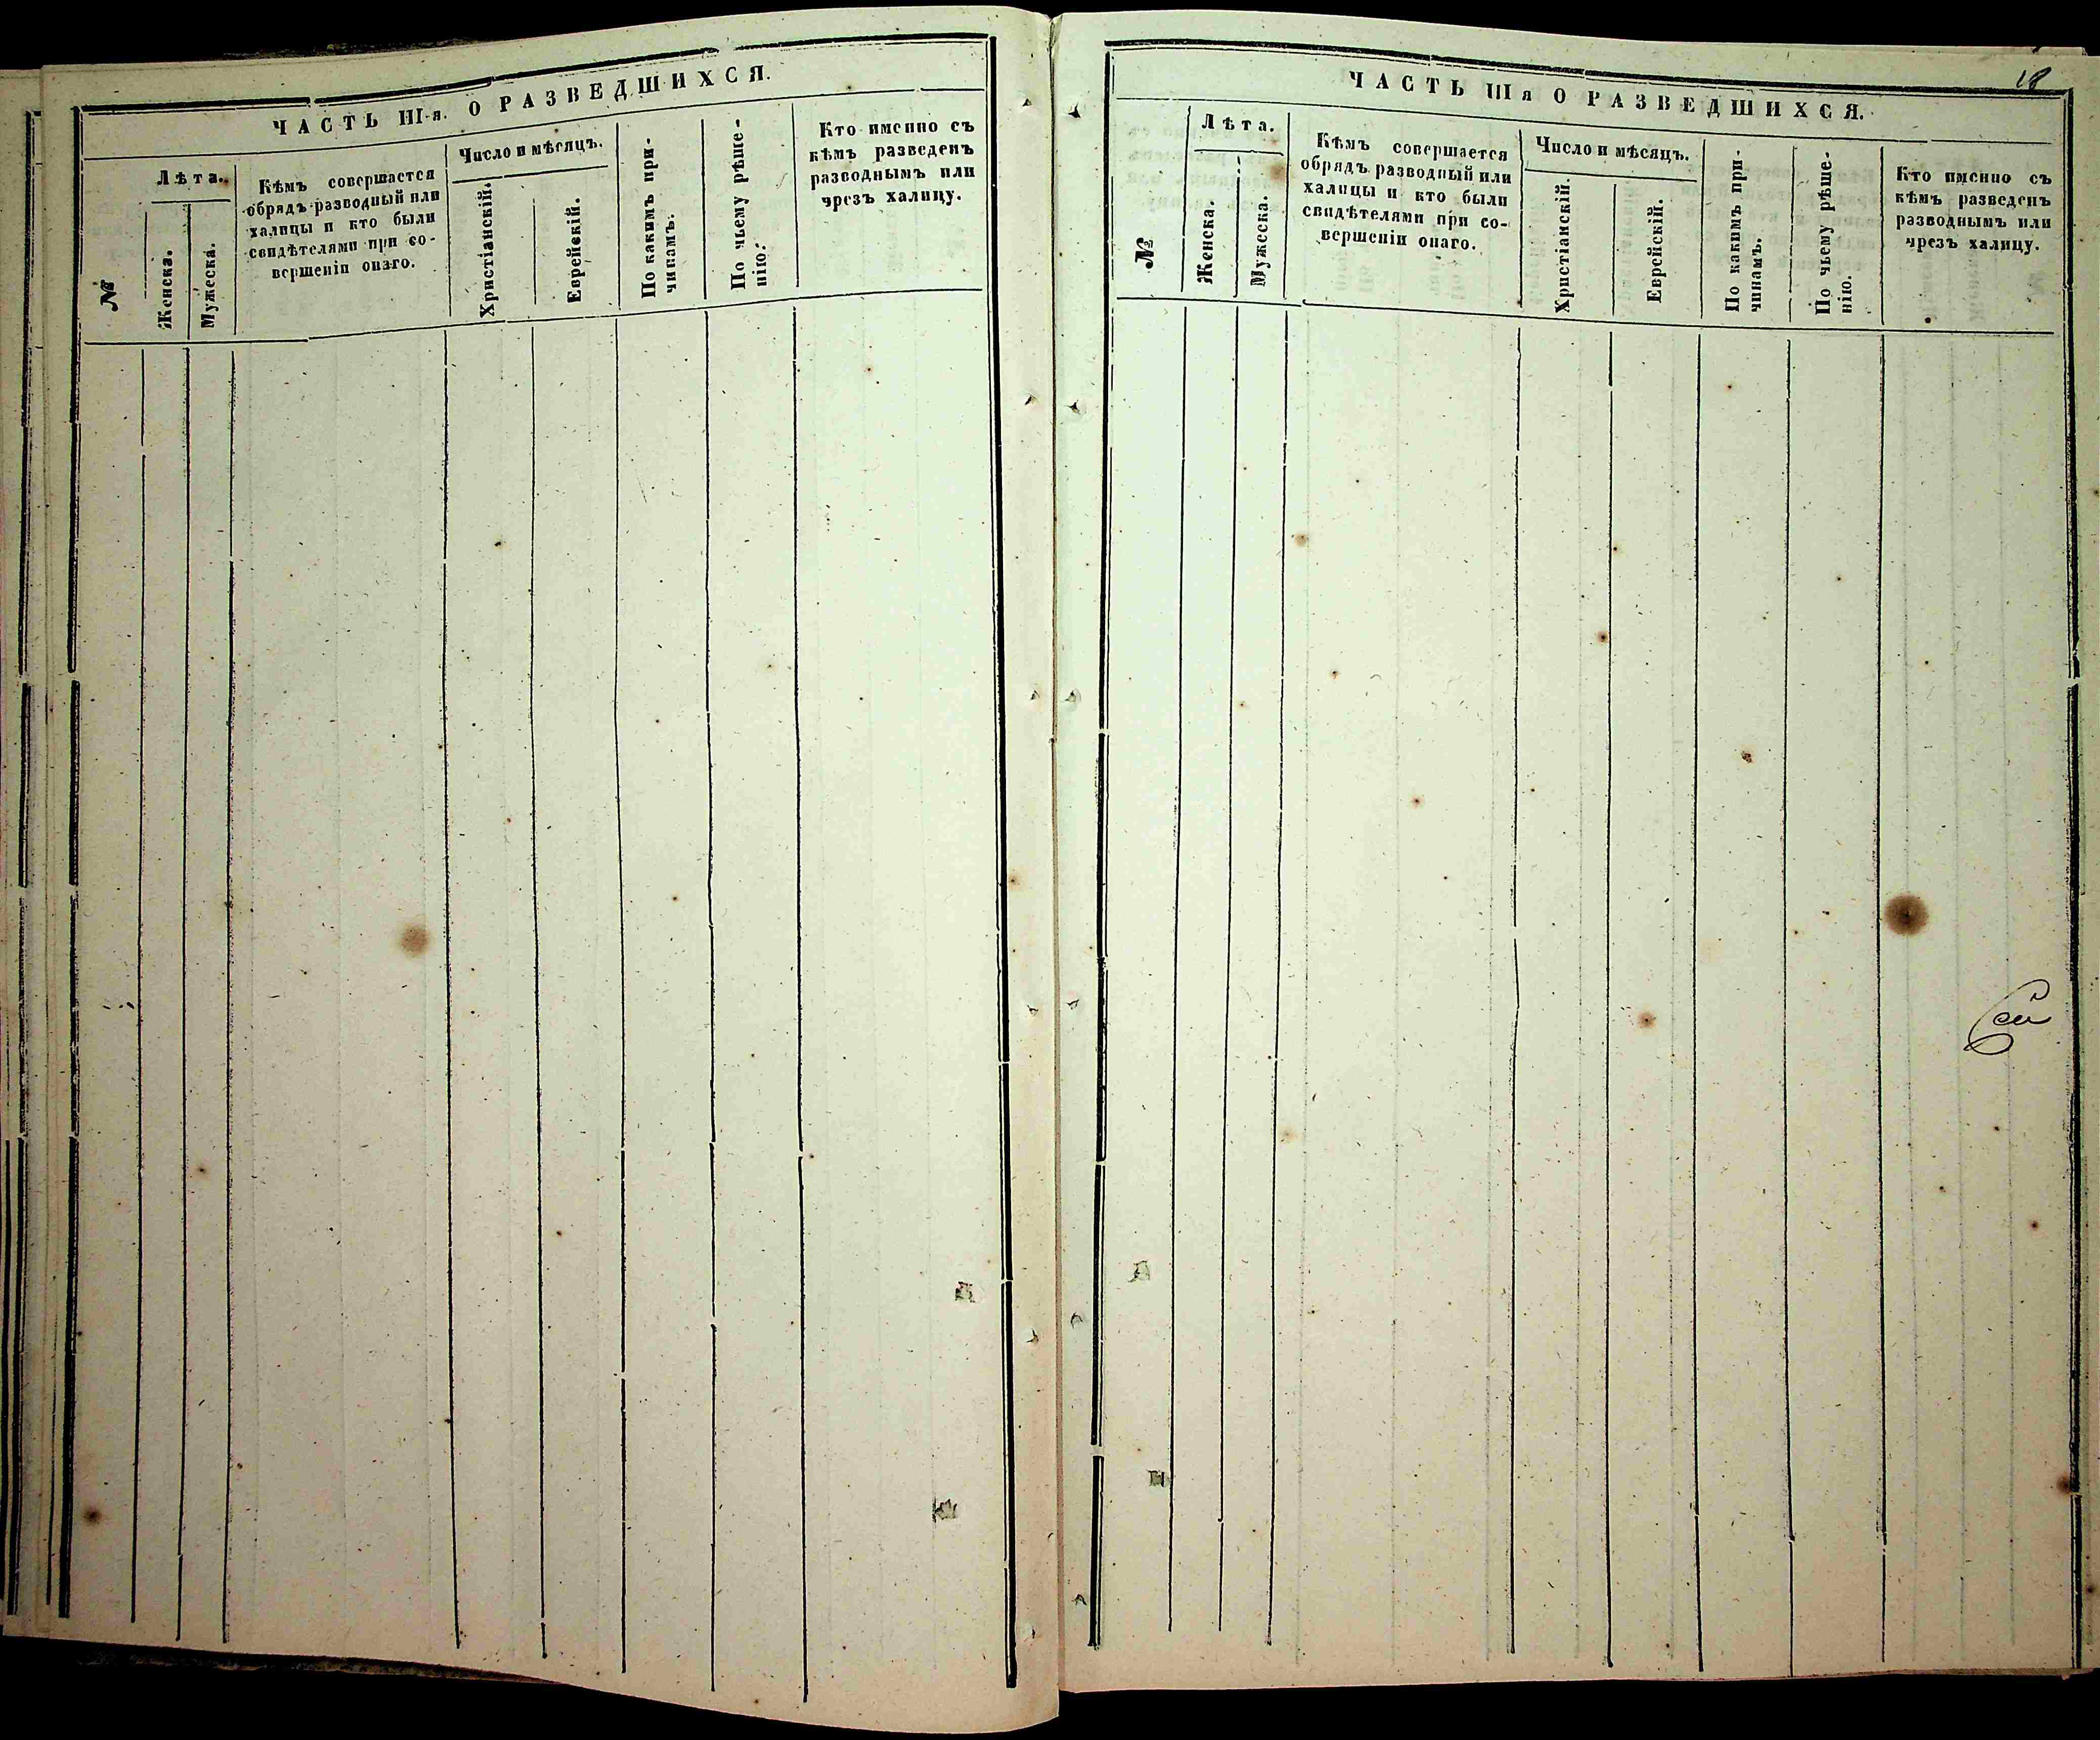 ЧАСТЬ III-я. О РАЗВЕДШИХСЯ.
№
Лѣта.
Женска.
Мужеска.
Кѣмъ совершается
обрядъ разводный или
халицы и кто были
свидѣтелями при со-
вершеніи онаго.
Число и мѣсяцъ.
Христіанскій.
Еврейскій.
По какимъ при-
чинамъ.
По чьему рѣше-
нію.
Кто именно съ
кѣмъ разведенъ
разводнымъ или
чрезъ халицу.
18
ЧАСТЬ III я О РАЗВЕДШИХСЯ.
№
Лѣта.
Женска.
Мужеска.
Кѣмъ совершается
обрядъ разводный или
халицы и кто были
свидѣтелями при со-
вершеніи онаго.
Число и мѣсяцъ.
Христіанскій.
Еврейскій.
По какимъ при-
чинамъ.
По чьему рѣше-
нію.
Кто именно съ
кѣмъ разведенъ
разводнымъ или
чрезъ халицу.